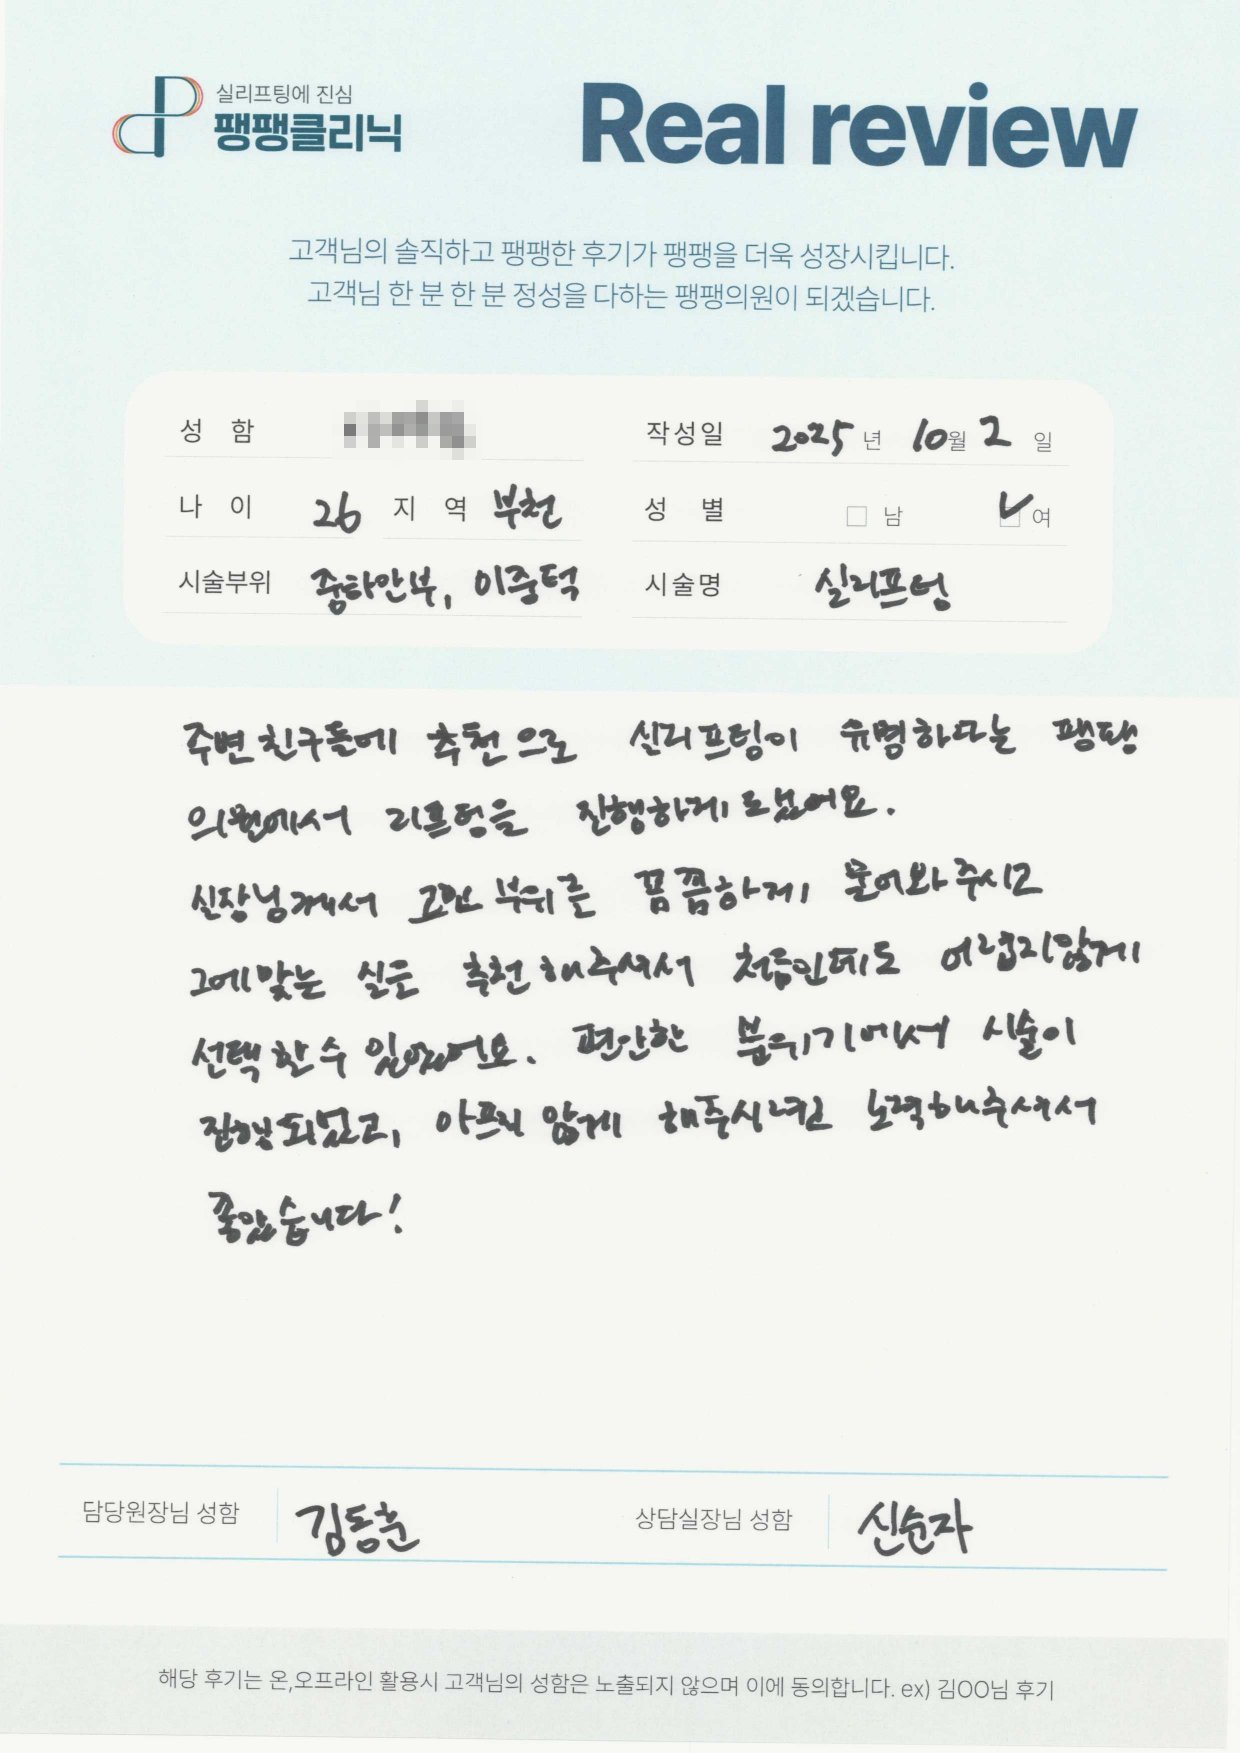 실리프팅에 진심
팽팽클리닉
Real review
고객님의 솔직하고 팽팽한 후기가 팽팽을 더욱 성장시킵니다.
고객님 한 분 한 분 정성을 다하는 팽팽의원이 되겠습니다.
성 함 작성일 2025 년 10 월 2 일
나 이 26 지 역 부천 성 별 남 여
시술부위 중하안부, 이중턱 시술명 실리프팅
주변 친구들에 추천으로 실리프팅이 유명하다는 팽팽
의원에서 리프팅을 진행하게 되었어요.
실장님께서 고민 부위를 꼼꼼하게 물어봐 주시고
그에 맞는 실을 추천해주셔서 처음인데도 어렵지않게
선택할 수 있었어요. 편안한 분위기에서 시술이
진행되었고, 아프지 않게 해주시려고 노력해주셔서
좋았습니다!
담당원장님 성함 김동훈 상담실장님 성함 신순자
해당 후기는 온,오프라인 활용시 고객님의 성함은 노출되지 않으며 이에 동의합니다. ex) 김OO님 후기